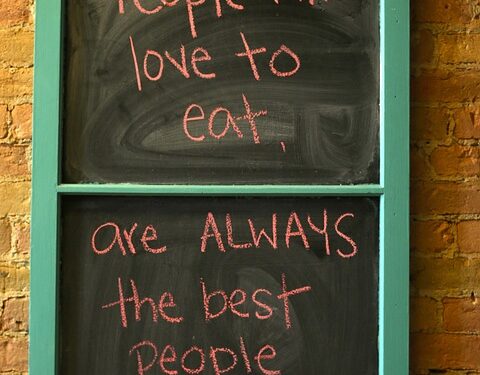 People
love to
eat,
are ALWAYS
the best
people